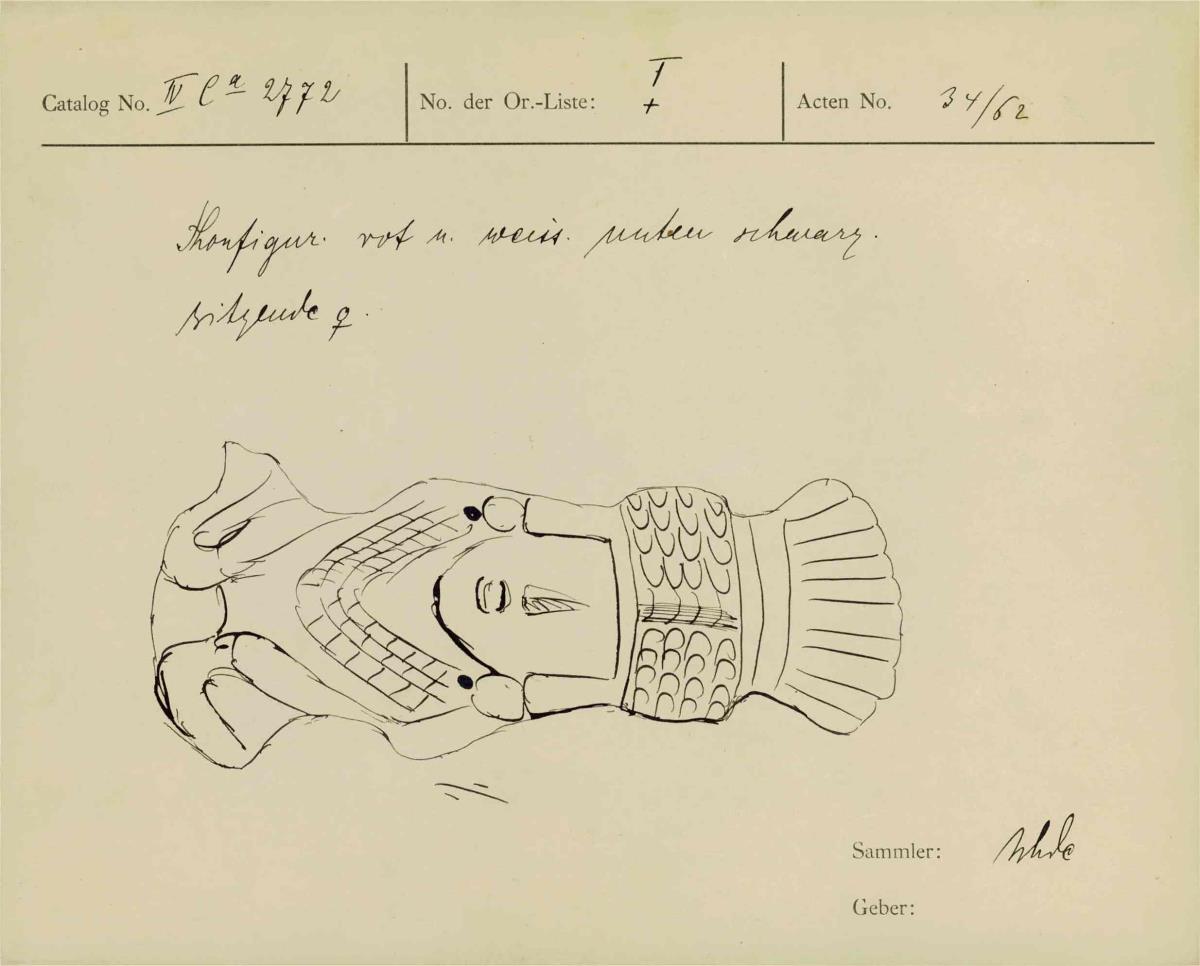 Catalog No. IV Ca 2772
No. der Or.-Liste: I +
Acten No. 34/62
Thonfigur. rot u. weiss. unten schwarz.
sitzende ♀.
Sammler: Uhde
Geber: